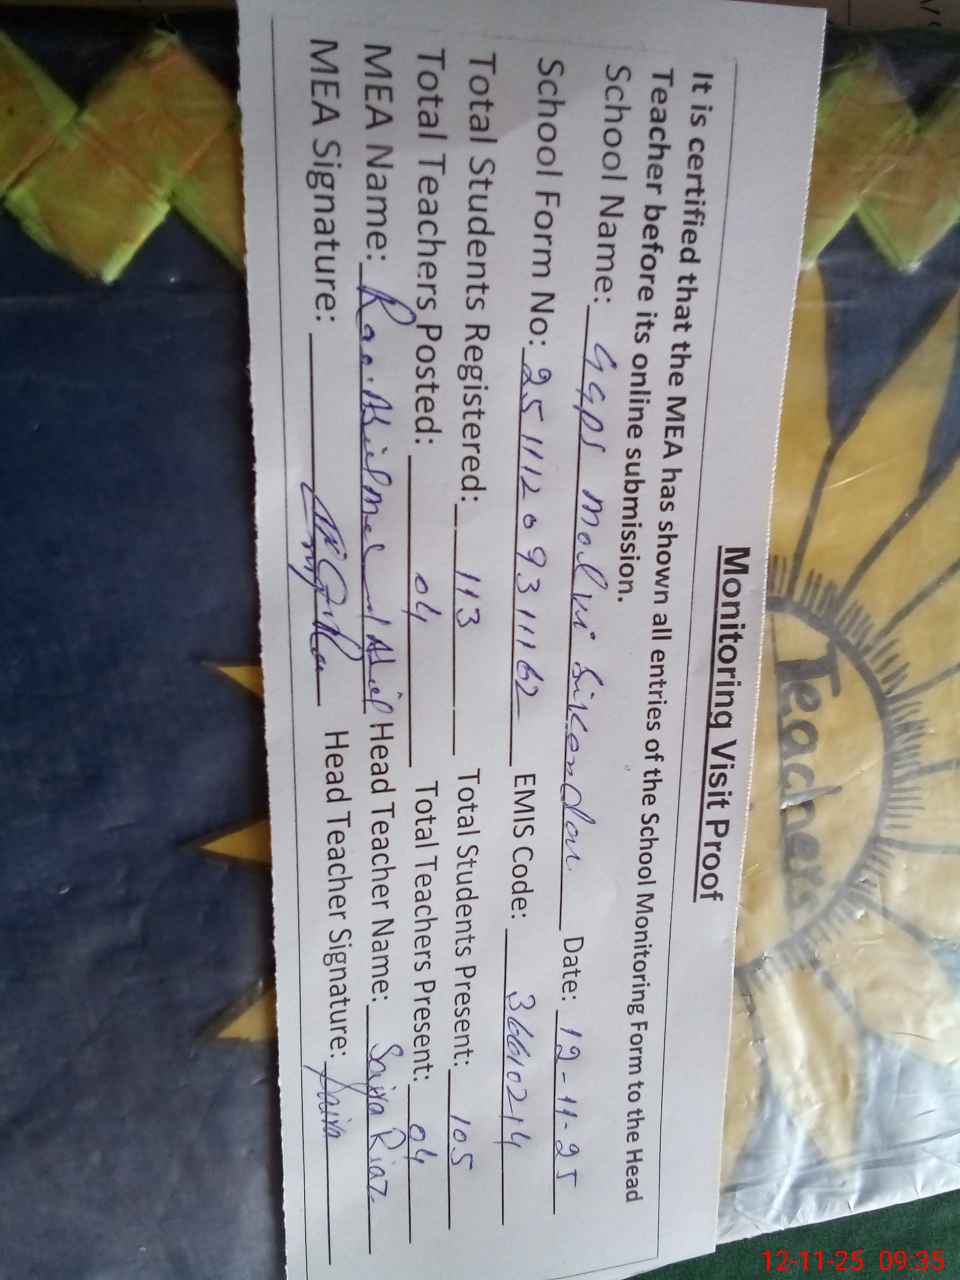 Monitoring Visit Proof
It is certified that the MEA has shown all entries of the School Monitoring Form to the Head
Teacher before its online submission.
School Name: GGPS Molvi Sikandar Date: 12-11-25
School Form No: 25111209311162 EMIS Code: 36610214
Total Students Registered: 113 Total Students Present: 105
Total Teachers Posted: 04 Total Teachers Present: 04
MEA Name: Head Teacher Name: Saiya Riaz
MEA Signature: Head Teacher Signature:
Teachers
12-11-25 09:35